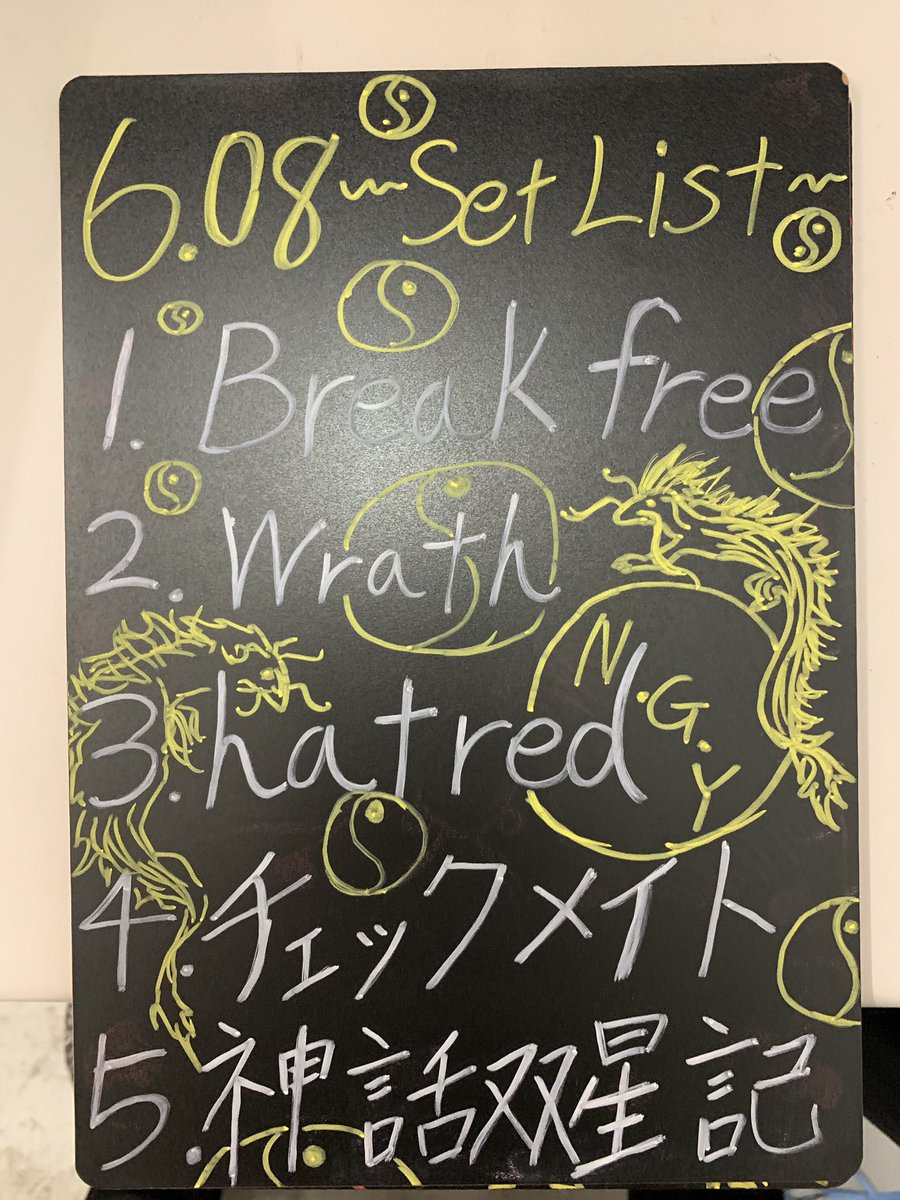 6.08 ~Set List~
1. Break free
2. Wrath
N.G.Y
3. hatred
4. チェックメイト
5. 神話双星記